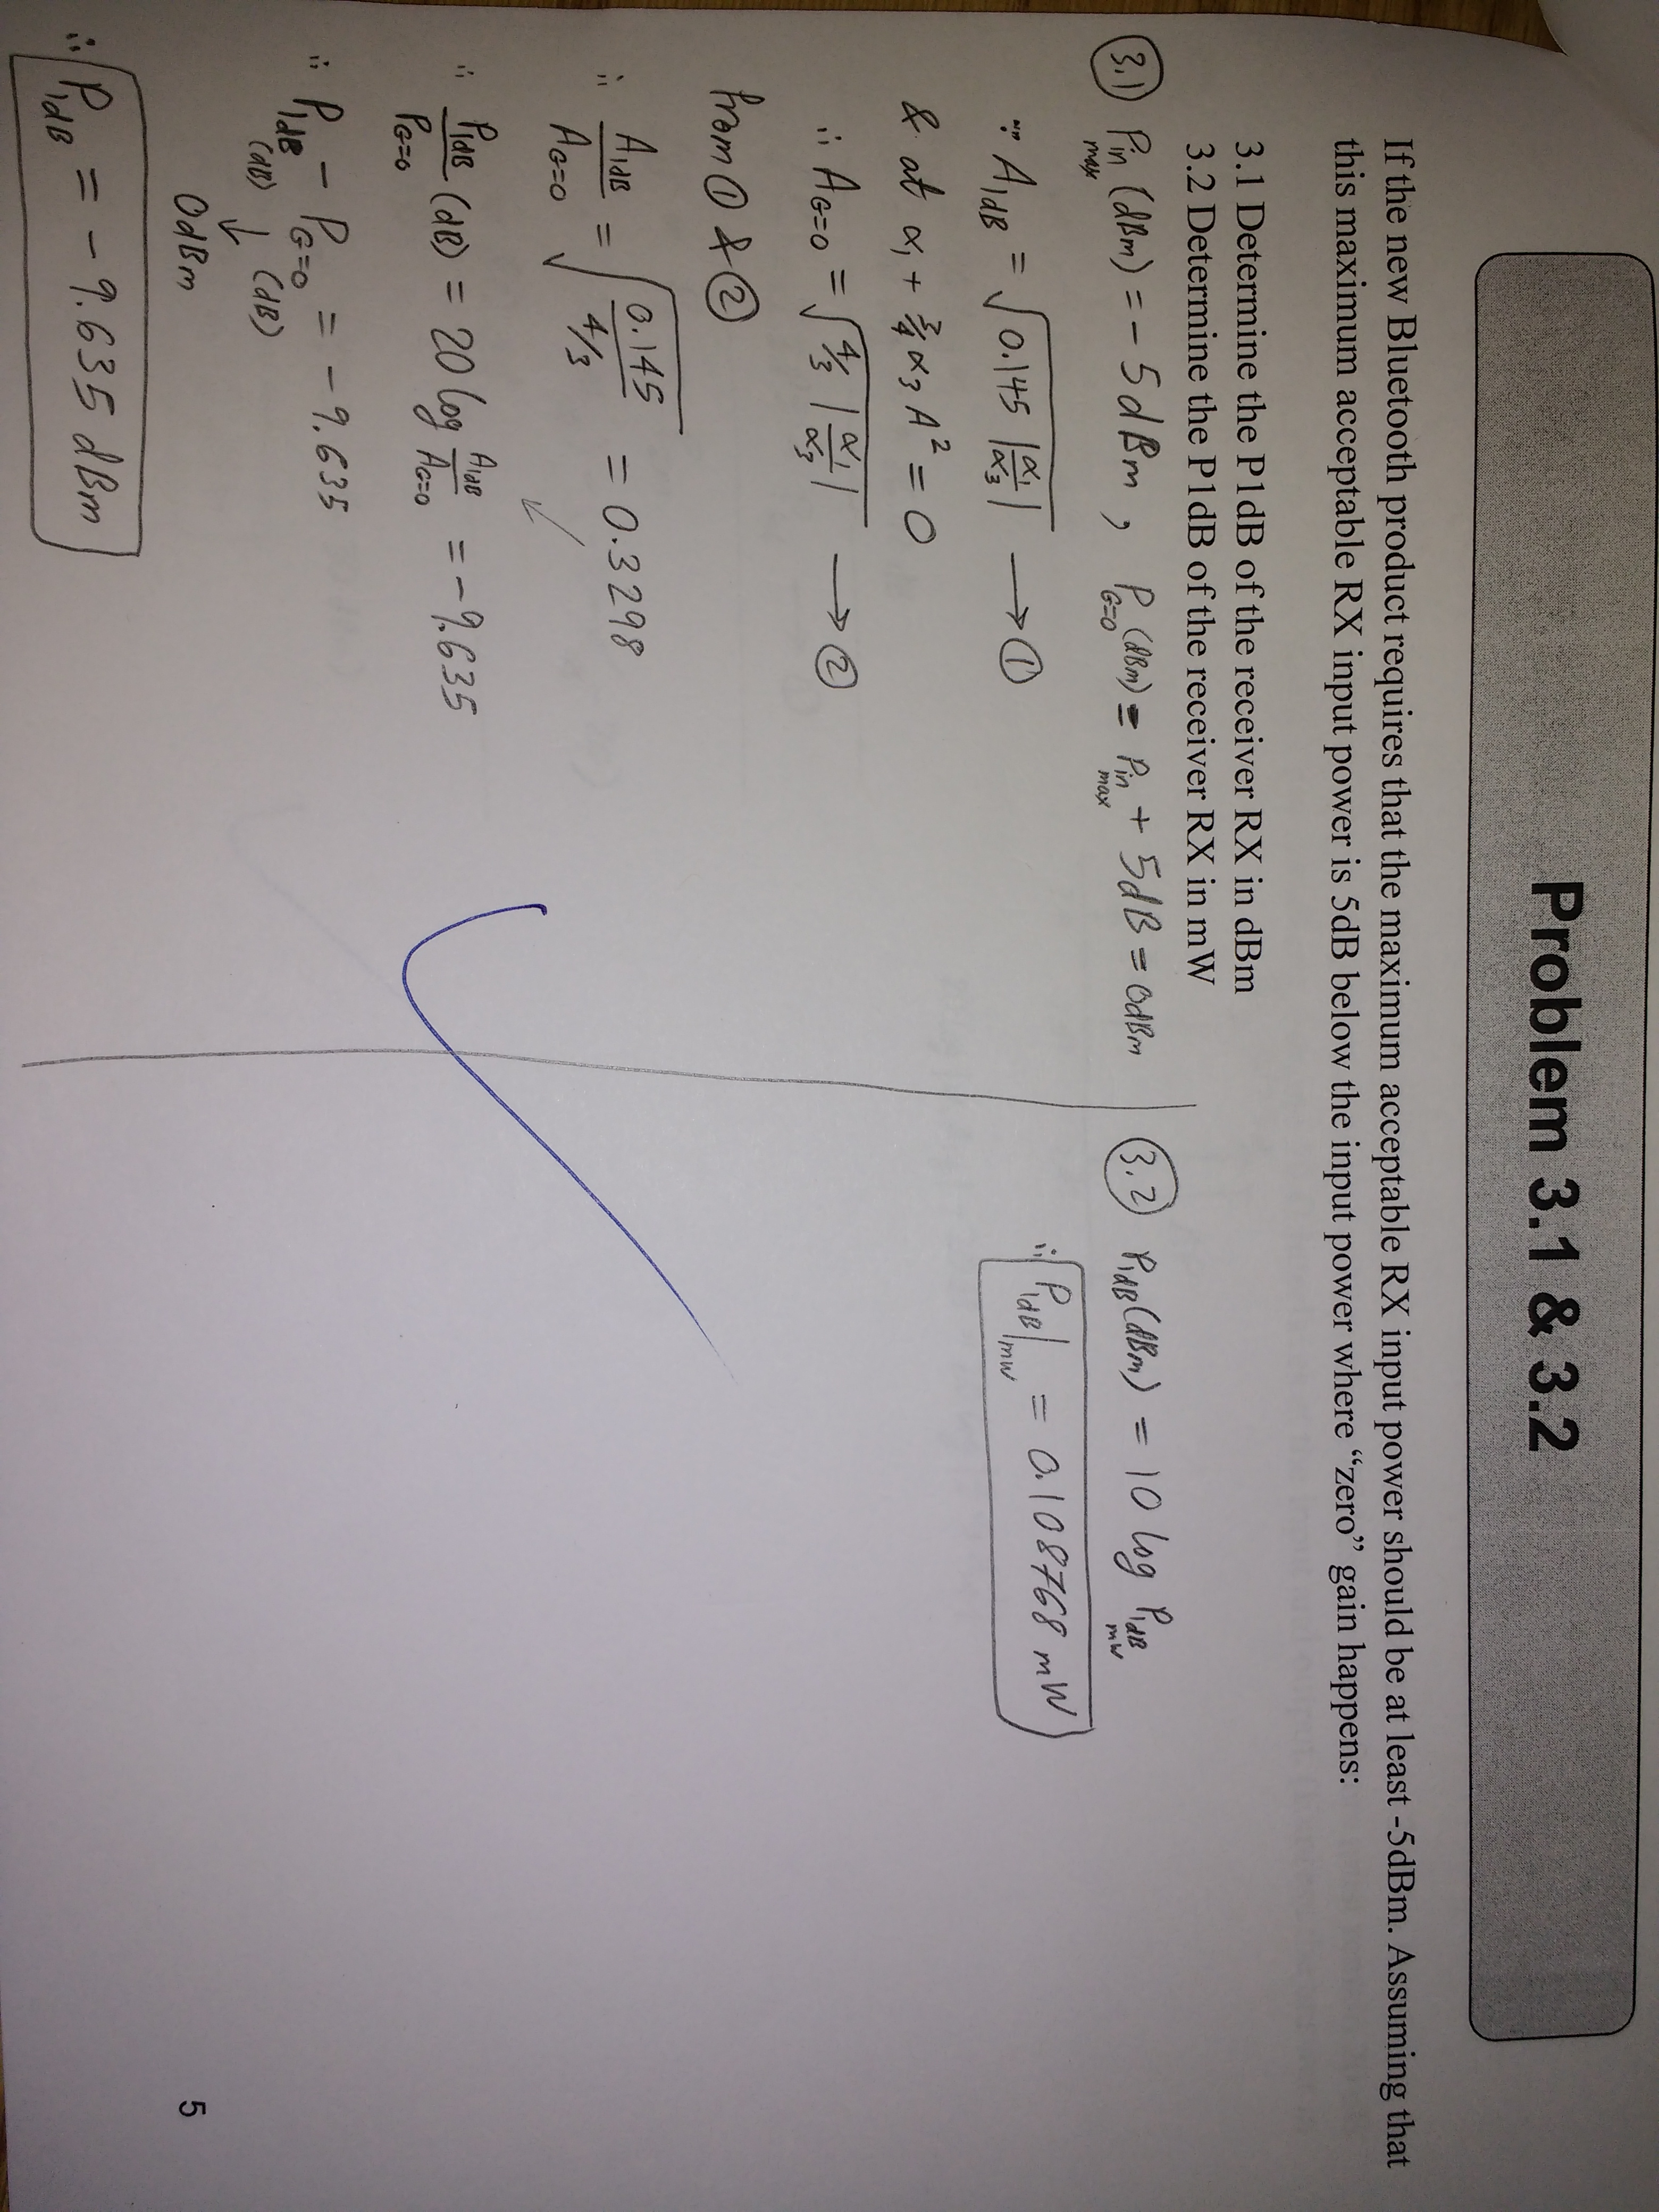 Problem 3.1 & 3.2
If the new Bluetooth product requires that the maximum acceptable RX input power should be at least -5dBm. Assuming that
this maximum acceptable RX input power is 5dB below the input power where “zero” gain happens:
3.1 Determine the P1dB of the receiver RX in dBm
3.2 Determine the P1dB of the receiver RX in mW
3.1) Pin max (dBm) = - 5dBm , PG=0 (dBm) = Pin max + 5dB = 0dBm
∵ A1dB = √(0.145 |α1/α3|) → ①
& at α1 + 3/4 α3 A² = 0
∴ AG=0 = √(4/3 |α1/α3|) → ②
From ① & ②
∴ A1dB/AG=0 = √(0.145/(4/3)) = 0.3298
∴ P1dB/PG=0 (dB) = 20 log A1dB/AG=0 = -9.635
∴ P1dB (dB) - PG=0 (dB) = -9.635
0dBm
∴ P1dB = -9.635 dBm
3.2 P1dB(dBm) = 10 log P1dB mW
∴ P1dB|mW = 0.108768 mW
5